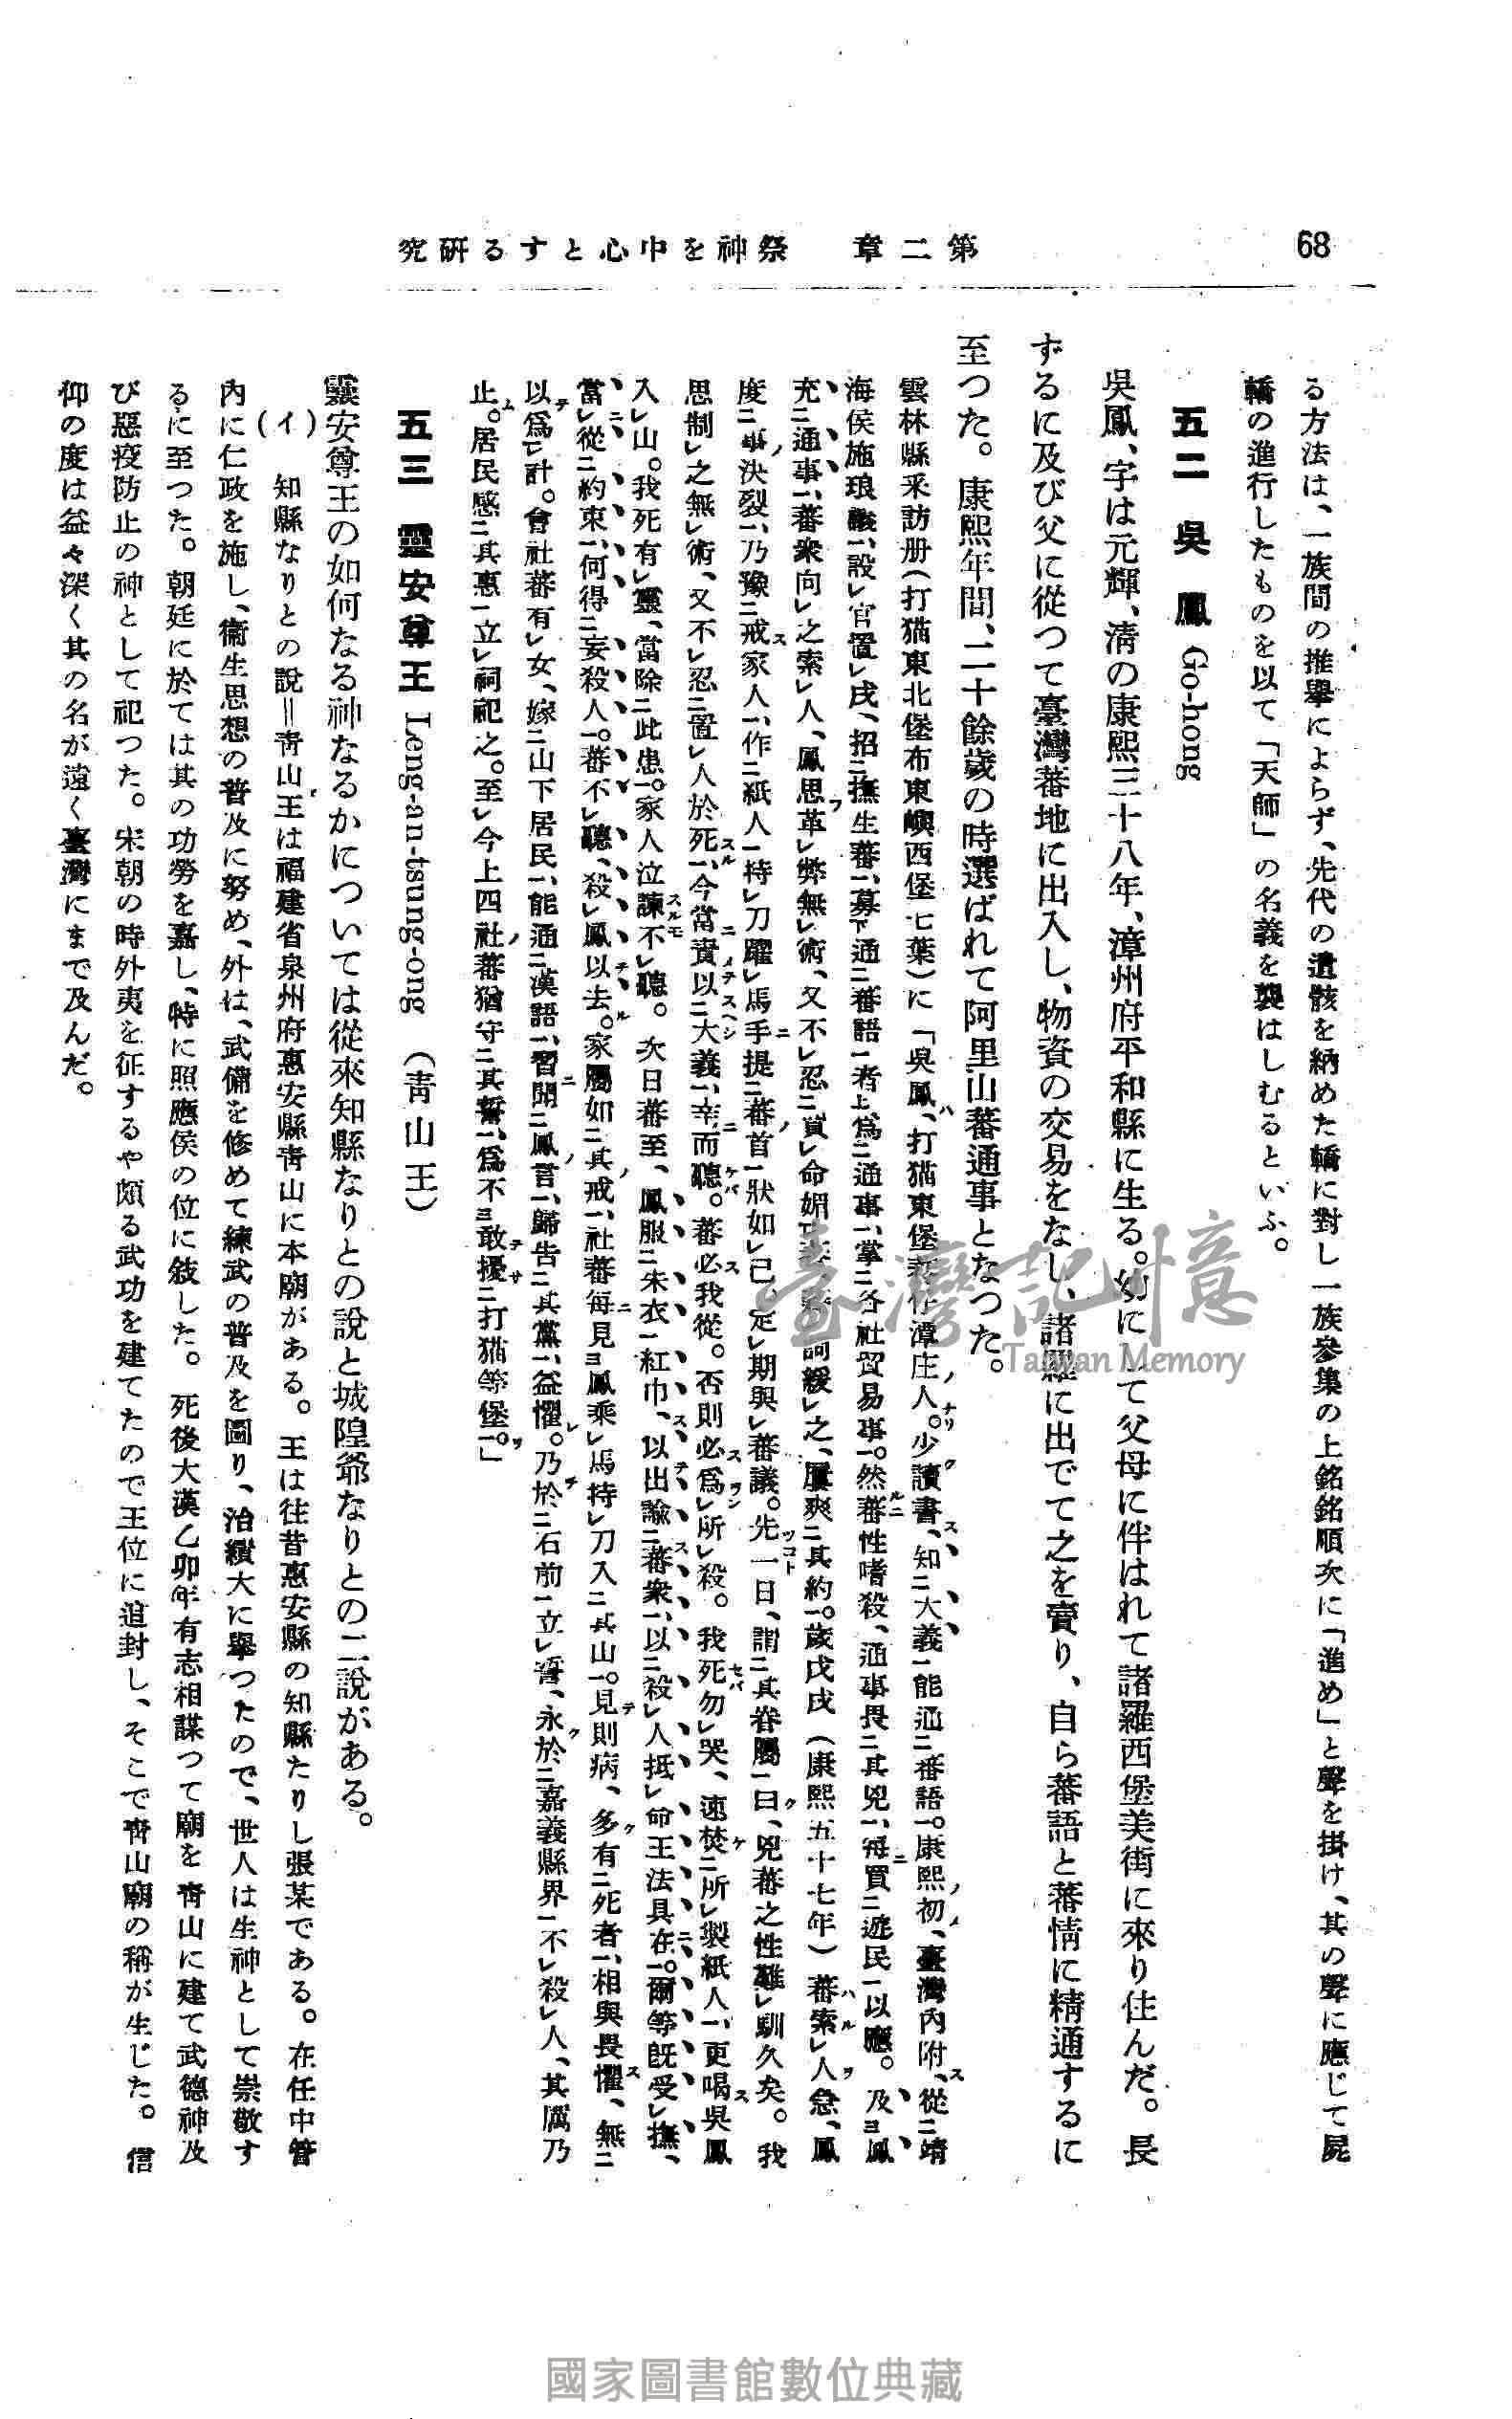 68
第二章　祭神を中心とする硏究
る方法は、一族間の推擧によらず、先代の遺骸を納めた轎に對し一族參集の上銘銘順次に「進め」と聲を掛け、其の聲に應じて屍
轎の進行したものを以て「天師」の名義を襲はしむるといふ。
五二　吳　鳳 Go-hong
吳鳳、字は元輝、淸の康熙三十八年、漳州府平和縣に生る。幼にして父母に伴はれて諸羅西堡美街に來り住んだ。長
ずるに及び父に從つて臺灣蕃地に出入し、物資の交易をなし、諸羅に出でて之を賣り、自ら蕃語と蕃情に精通するに
至つた。康熙年間、二十餘歲の時選ばれて阿里山蕃通事となつた。
雲林縣采訪册(打猫東北堡布東嶼西堡七葉)に「吳鳳、打猫東堡蕃仔潭庄人。少讀書、知大義、能通番語。康熙初、臺灣內附、從靖
海侯施琅議、設官置戍、招撫生蕃、募通番語者、爲通事、掌各社貿易事。然蕃性嗜殺、通事畏其兇、每買遊民以應。及鳳
充通事、蕃衆向之索人、鳳思革弊無術、又不忍買命媚蕃、詞緩之、屢爽其約。歲戊戌(康熙五十七年)蕃索人急、鳳
度事決裂、乃豫戒家人、作紙人持刀躍馬手提蕃首狀如己、定期與蕃議。先一日、謂其眷屬曰、兇蕃之性難馴久矣。我
思制之無術、又不忍置人於死、今當責以大義、幸而聽。蕃必我從。否則必爲所殺。我死勿哭、速焚所製紙人、更喝吳鳳
入山。我死有靈、當除此患。家人泣諫不聽。次日蕃至、鳳服朱衣紅巾、以出諭蕃衆、以殺人抵命王法具在。爾等既受撫、
當從約束、何得妄殺人。蕃不聽、殺鳳以去。家屬如其戒、社蕃每見鳳乘馬持刀入其山。見則病、多有死者、相與畏懼、無
以爲計。會社蕃有女、嫁山下居民、能通漢語、習聞鳳言、歸告其黨、益懼。乃於石前立誓、永於嘉義縣界不殺人、其厲乃
止。居民感其惠立祠祀之。至今上四社蕃猶守其誓、爲不敢擾打猫等堡。」
五三　靈安尊王 Leng-an-tsung-ong　(靑山王)
靈安尊王の如何なる神なるかについては從來知縣なりとの說と城隍爺なりとの二說がある。
(イ)　知縣なりとの說＝靑山王は福建省泉州府惠安縣靑山に本廟がある。王は往昔惠安縣の知縣たりし張某である。在任中管
內に仁政を施し、衞生思想の普及に努め、外は、武備を修めて練武の普及を圖り、治績大に擧つたので、世人は生神として崇敬す
るに至つた。朝廷に於ては其の功勞を嘉し、特に照應侯の位に敍した。死後大漢乙卯年有志相謀つて廟を靑山に建て武德神及
び惡疫防止の神として祀つた。宋朝の時外夷を征するや頗る武功を建てたので王位に追封し、そこで靑山廟の稱が生じた。信
仰の度は益々深く其の名が遠く臺灣にまで及んだ。
臺灣記憶
Taiwan Memory
國家圖書館數位典藏